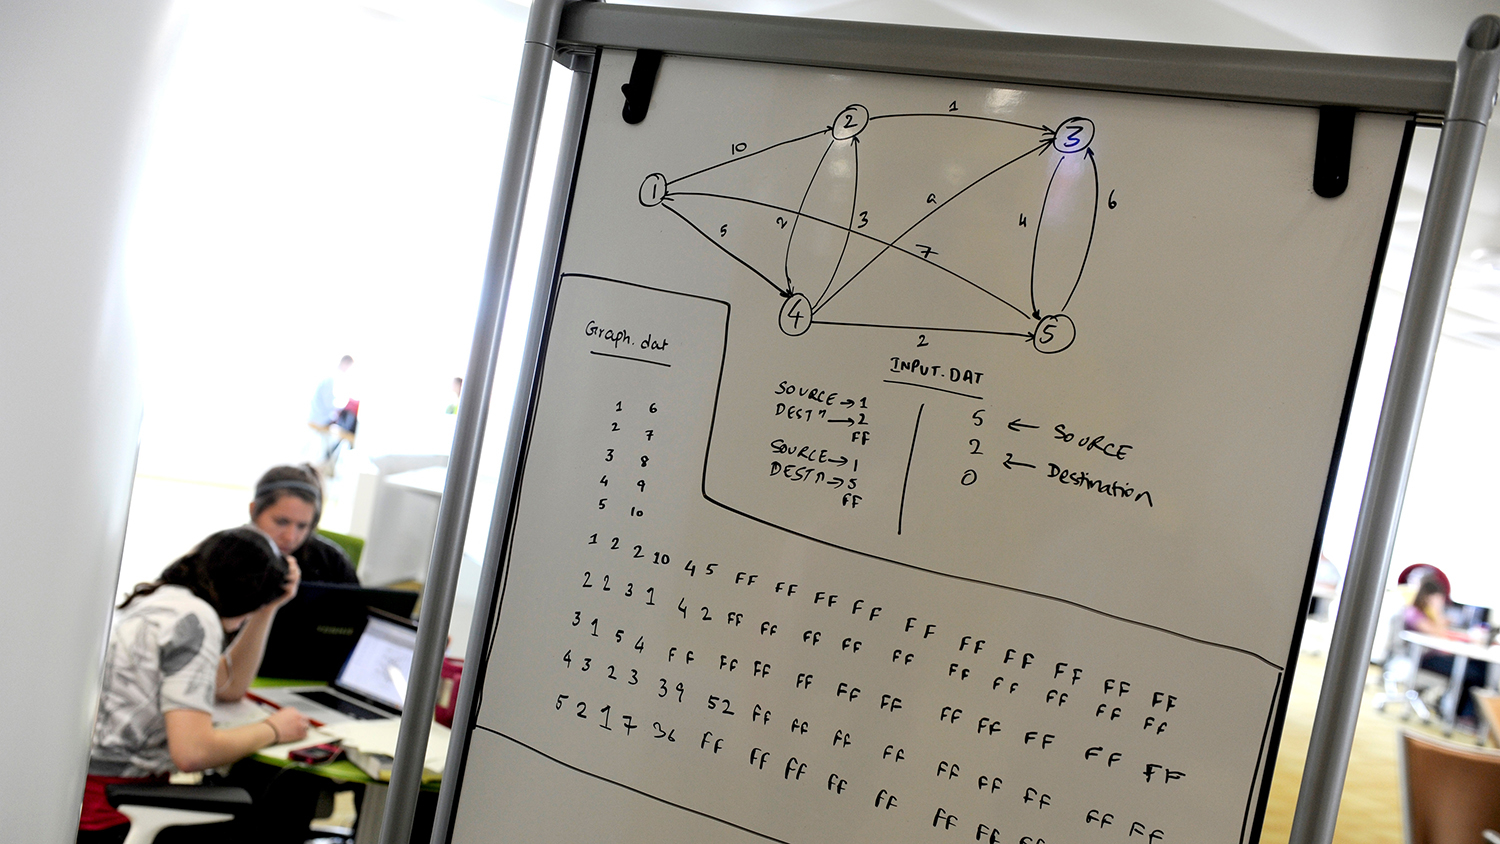 1
10
2
1
3
1
5
2
3
a
7
4
6
4
2
5
Graph.dat
1 6
2 7
3 8
4 9
5 10
INPUT.DAT
SOURCE→1
DESTⁿ→2
FF
SOURCE→1
DESTⁿ→5
FF
5 ← SOURCE
2 ← Destination
0
1 2 2 10 4 5 FF FF FF FF FF FF FF FF FF FF
2 2 3 1 4 2 FF FF FF FF FF FF FF FF FF FF
3 1 5 4 FF FF FF FF FF FF FF FF FF FF FF
4 3 2 3 3 9 5 2 FF FF FF FF FF FF FF FF FF
5 2 1 7 3 6 FF FF FF FF FF FF FF